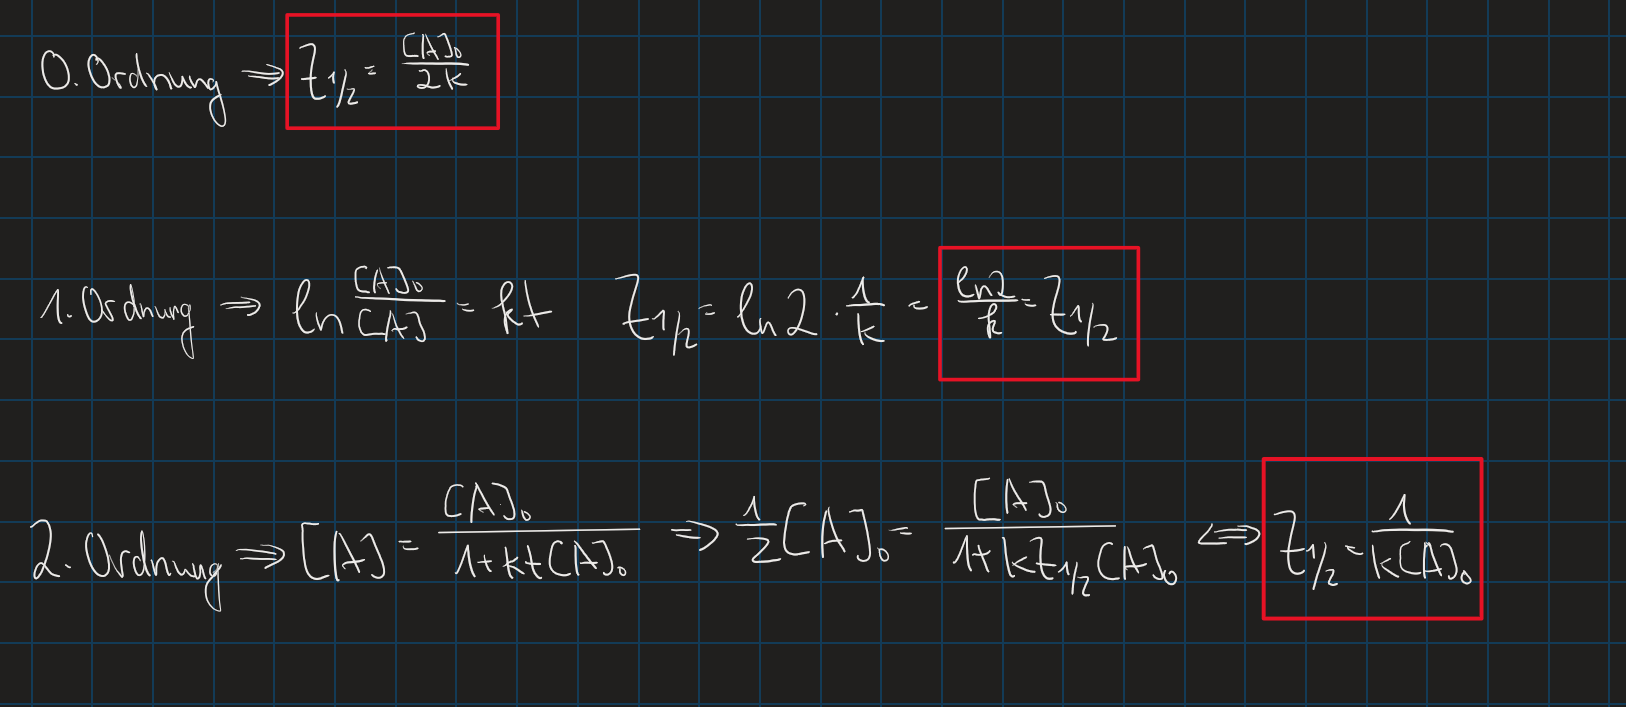 0. Ordnung ⇒ τ₁/₂ = [A]₀/2k
1. Ordnung ⇒ ln [A]₀/[A] = kt τ₁/₂ = ln2 · 1/k = ln2/k = τ₁/₂
2. Ordnung ⇒ [A] = [A]₀/1+kt[A]₀ ⇒ 1/2 [A]₀ = [A]₀/1+kτ₁/₂[A]₀ ⇔ τ₁/₂ = 1/k[A]₀